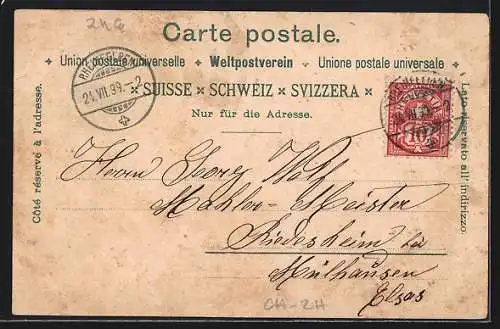 Carte postale.
Union postale universelle ✦ Weltpostverein ✦ Unione postale universale
SUISSE × SCHWEIZ × SVIZZERA
Nur für die Adresse.
Côté réservé à l'adresse.
Lato riservato all'indirizzo.
21.VII.99.-2
10
Herrn Georg
Mahler-Meister
Riedesheim bei
Mülhausen
Elsas
CH-ZH